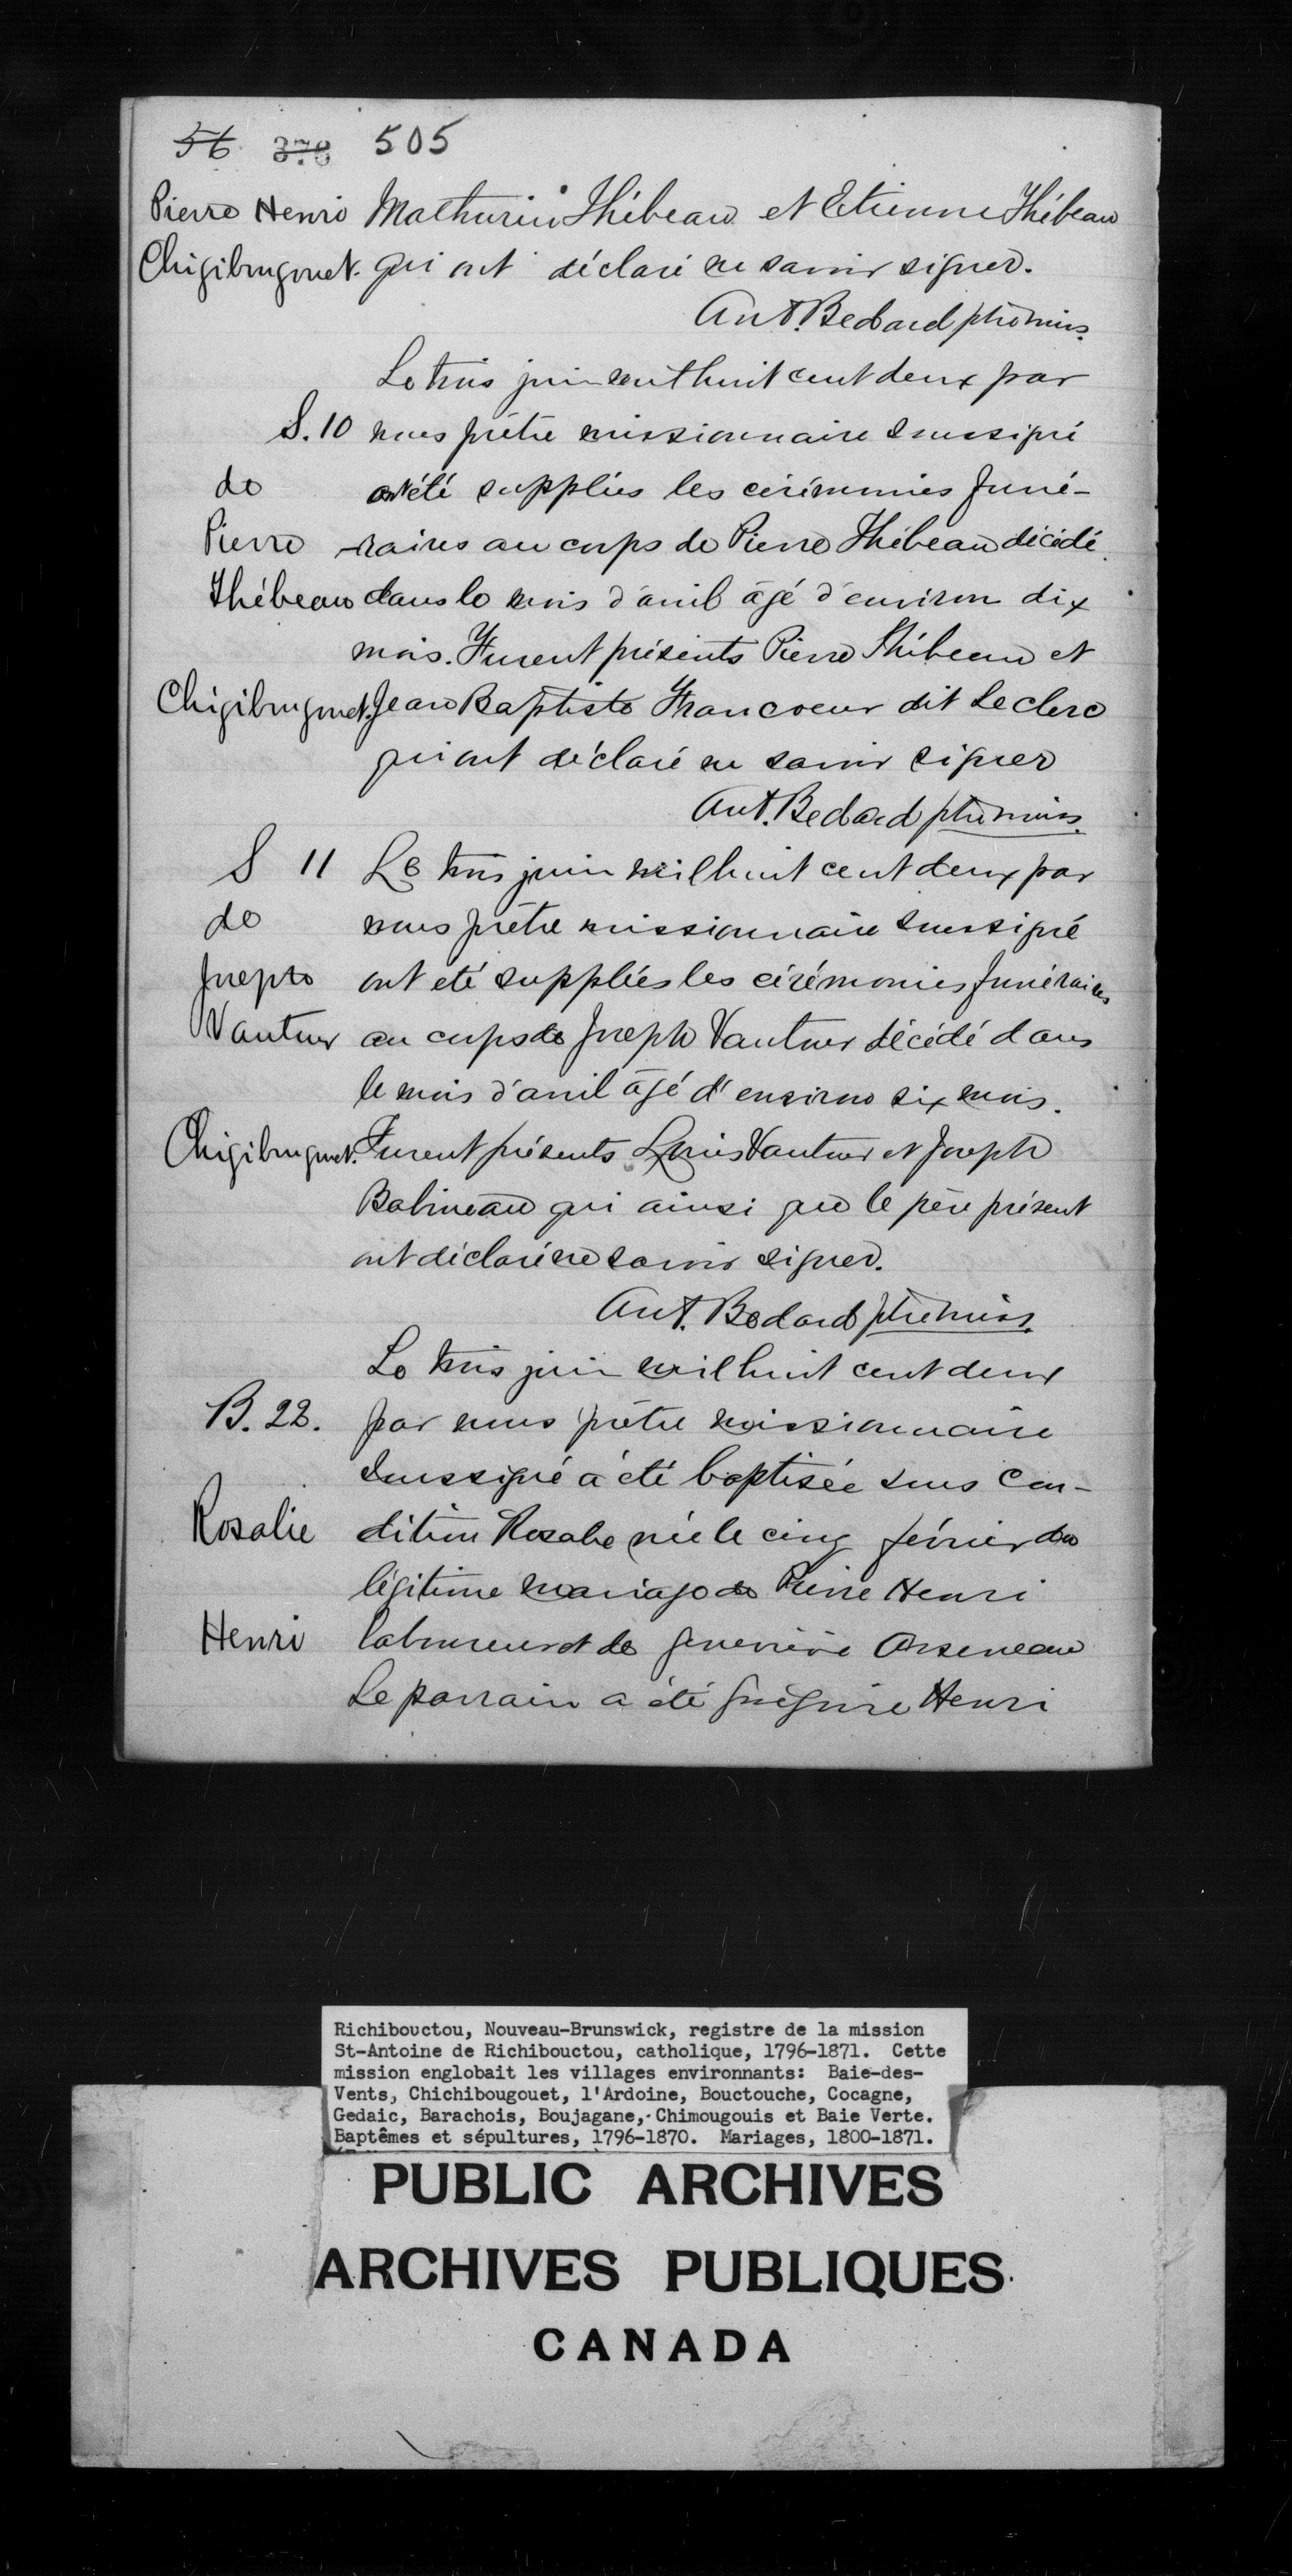 56 378 505
Pierre Henri Mathurin Thibeau et Etienne Thibeau
Chigibougouet. qui ont déclaré ne savoir signer.
Ant. Bedard ptre miss.
Le trois juin mil huit cent deux par
S. 10 nous prêtre missionnaire soussigné
de ont été supplées les cérémonies funé-
Pierre -raires au corps de Pierre Thibeau décédé
Thébeau dans le mois d'avril âgé d'environ dix
mois. Furent présents Pierre Thibeau et
Chigibougouet. Jean Baptiste Francoeur dit Leclerc
qui ont déclaré ne savoir signer
Ant. Bedard ptre miss.
S 11 Le trois juin mil huit cent deux par
de nous prêtre missionnaire soussigné
Joseph ont eté supplées les cérémonies funéraires
Vautour au corps de Joseph Vautour décédé dans
le mois d'avril âgé d'environ six mois.
Chigibougouet. Furent présents Louis Vautour et Joseph
Babineau qui ainsi que le père présent
ont déclaré ne savoir signer.
Ant. Bedard ptre miss.
Le trois juin mil huit cent deux
B. 22. par nous prêtre missionnaire
soussigné a été baptisée sous con-
Rosalie dition Rosalie née le cinq février du
légitime mariage de Pierre Henri
Henri laboureur et de Geneviève Arseneau
Le parrain a été Grégoire Henri
Richibouctou, Nouveau-Brunswick, registre de la mission
St-Antoine de Richibouctou, catholique, 1796-1871. Cette
mission englobait les villages environnants: Baie-des-
Vents, Chichibougouet, l'Ardoine, Bouctouche, Cocagne,
Gedaic, Barachois, Boujagane, Chimougouis et Baie Verte.
Baptêmes et sépultures, 1796-1870. Mariages, 1800-1871.
PUBLIC ARCHIVES
ARCHIVES PUBLIQUES
CANADA